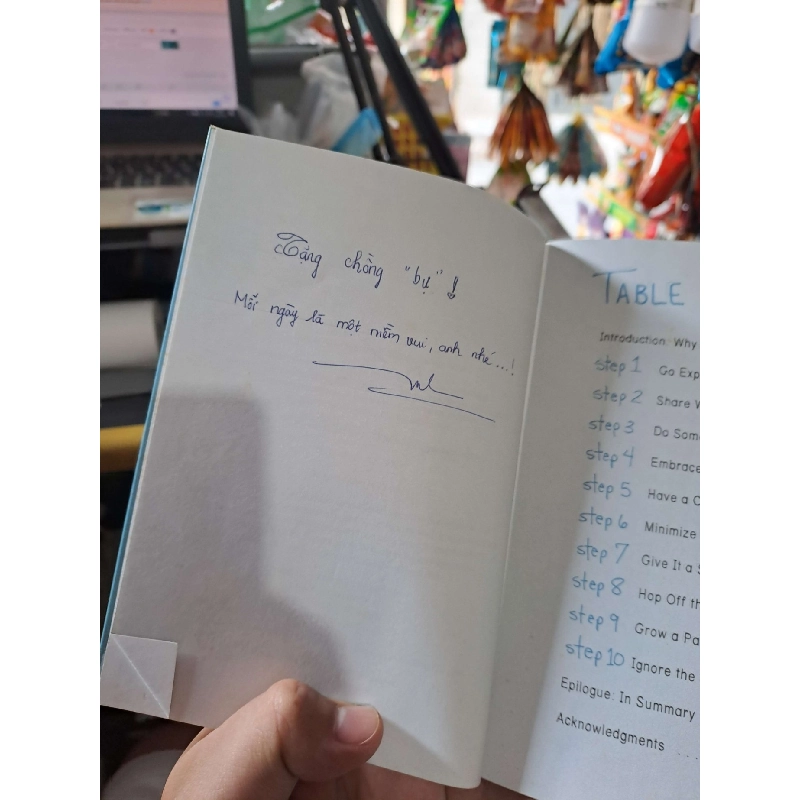 Tặng chồng "bự"!
Mỗi ngày là một niềm vui, anh nhé...!
TABLE
Introduction: Why
step 1 Go Exp
step 2 Share W
step 3 Do Som
step 4 Embrace
step 5 Have a C
step 6 Minimize
step 7 Give It a S
step 8 Hop Off th
step 9 Grow a Pa
step 10 Ignore the
Epilogue: In Summary
Acknowledgments ...